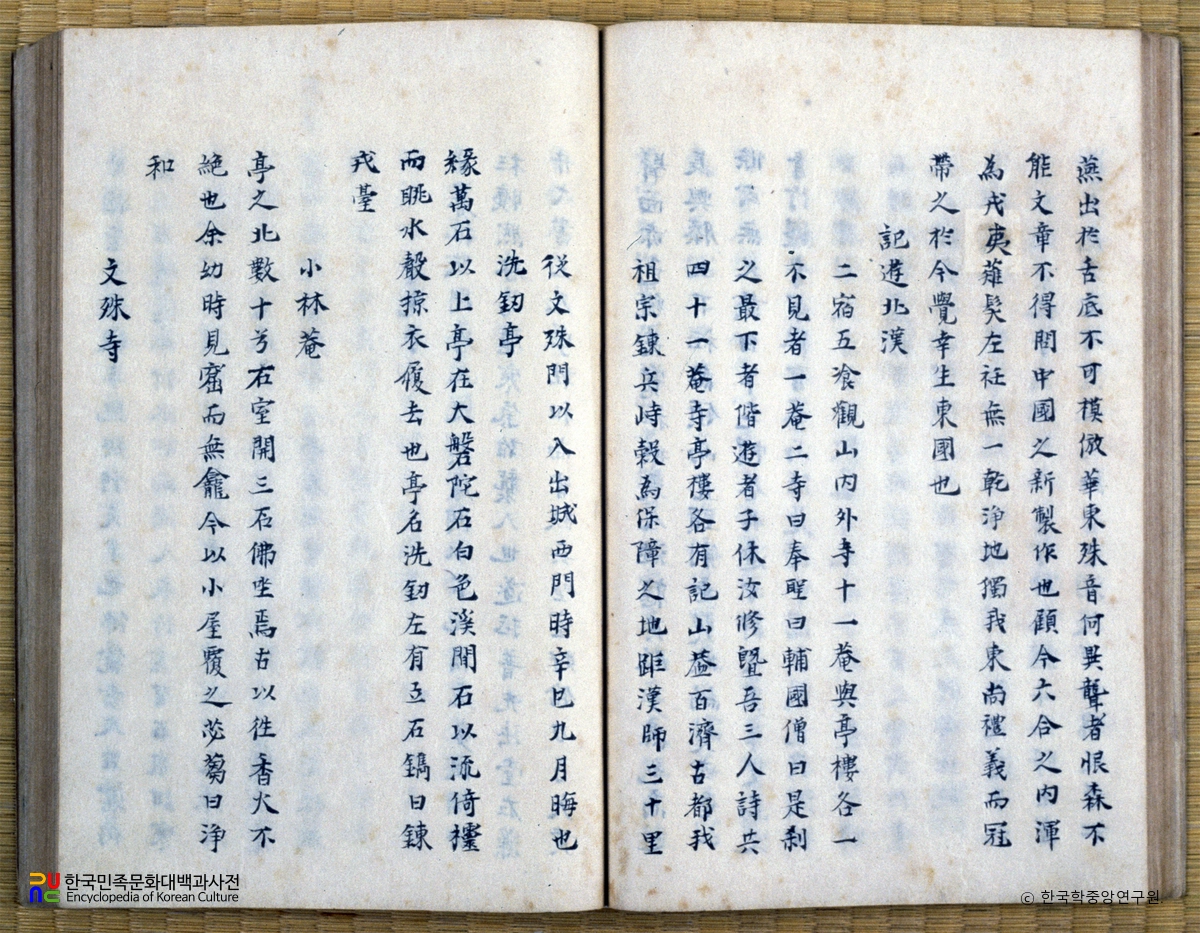 燕出於舌底不可模倣華東殊音何異聾者恨森不
能文章不得閱中國之新製作也顧今六合之內渾
為戎夷薙髮左衽無一乾浄地獨我東尚禮義而冠
帶之於今覺幸生東國也
記遊北漢
二宿五飡觀山內外寺十一菴與亭樓各一
不見者一菴二寺曰奉聖曰輔國僧曰是刹
之最下者偕遊者子休汝修曁吾三人詩共
四十一菴寺亭樓各有記山盖百濟古都我
祖宗鍊兵峙穀為保障之地距漢師三十里
從文殊門以入出城西門時辛巳九月晦也
洗釰亭
緣萬石以上亭在大磐陀石白色溪間石以流倚欞
而眺水聲掠衣履去也亭名洗釰左有立石鐫曰鍊
戎臺
小林菴
亭之北數十弓右室開三石佛坐焉古以徃香火不
絕也余幼時見窟而無龕今以小屋覆之苾蒭曰浄
和
文殊寺
한국민족문화대백과사전
Encyclopedia of Korean Culture
ⓒ 한국학중앙연구원